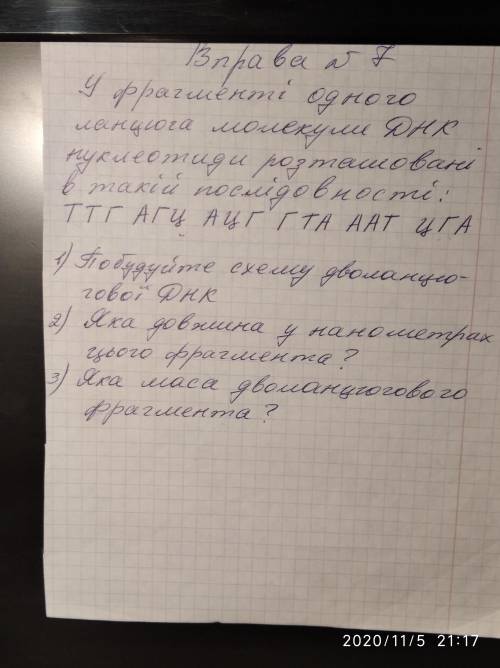 Вправа № 7
У фрагменті одного
ланцюга молекули ДНК
нуклеотиди розташовані
в такій послідовності:
ТТГ АГЦ АЦГ ГТА ААТ ЦГА
1) Побудуйте схему дволанцю-
гової ДНК
2) Яка довжина у нанометрах
цього фрагмента?
3) Яка маса дволанцюгового
фрагмента?
2020/11/5 21:17